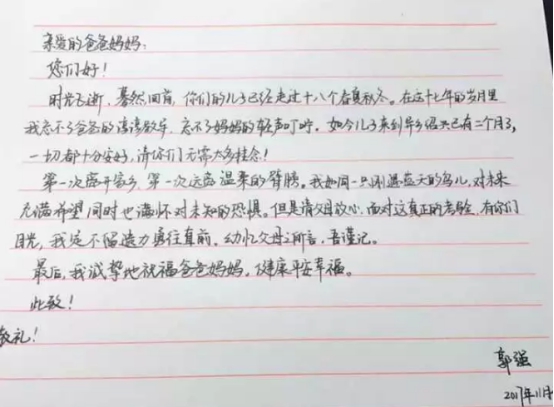 亲爱的爸爸妈妈:
您们好!
时光飞逝,蓦然回首,你们的儿子已经走过十八个春夏秋冬。在这十七年的岁月里
我忘不了爸爸的谆谆教导,忘不了妈妈的轻声叮咛。如今儿子来到异乡绍兴已有二个月了,
一切都十分安好,请你们无需太多挂念!
第一次离开家乡,第一次远离温柔的臂膀。我如同一只刚遇蓝天的鸟儿,对未来
充满希望同时也满怀对未知的恐惧。但是请父母放心,面对这真正的考验,有你们
目光,我定不留遗力勇往直前。幼忆父母之所言,吾谨记。
最后,我诚挚地祝福爸爸妈妈,健康平安幸福。
此致!
敬礼!
郭强
2017年11月